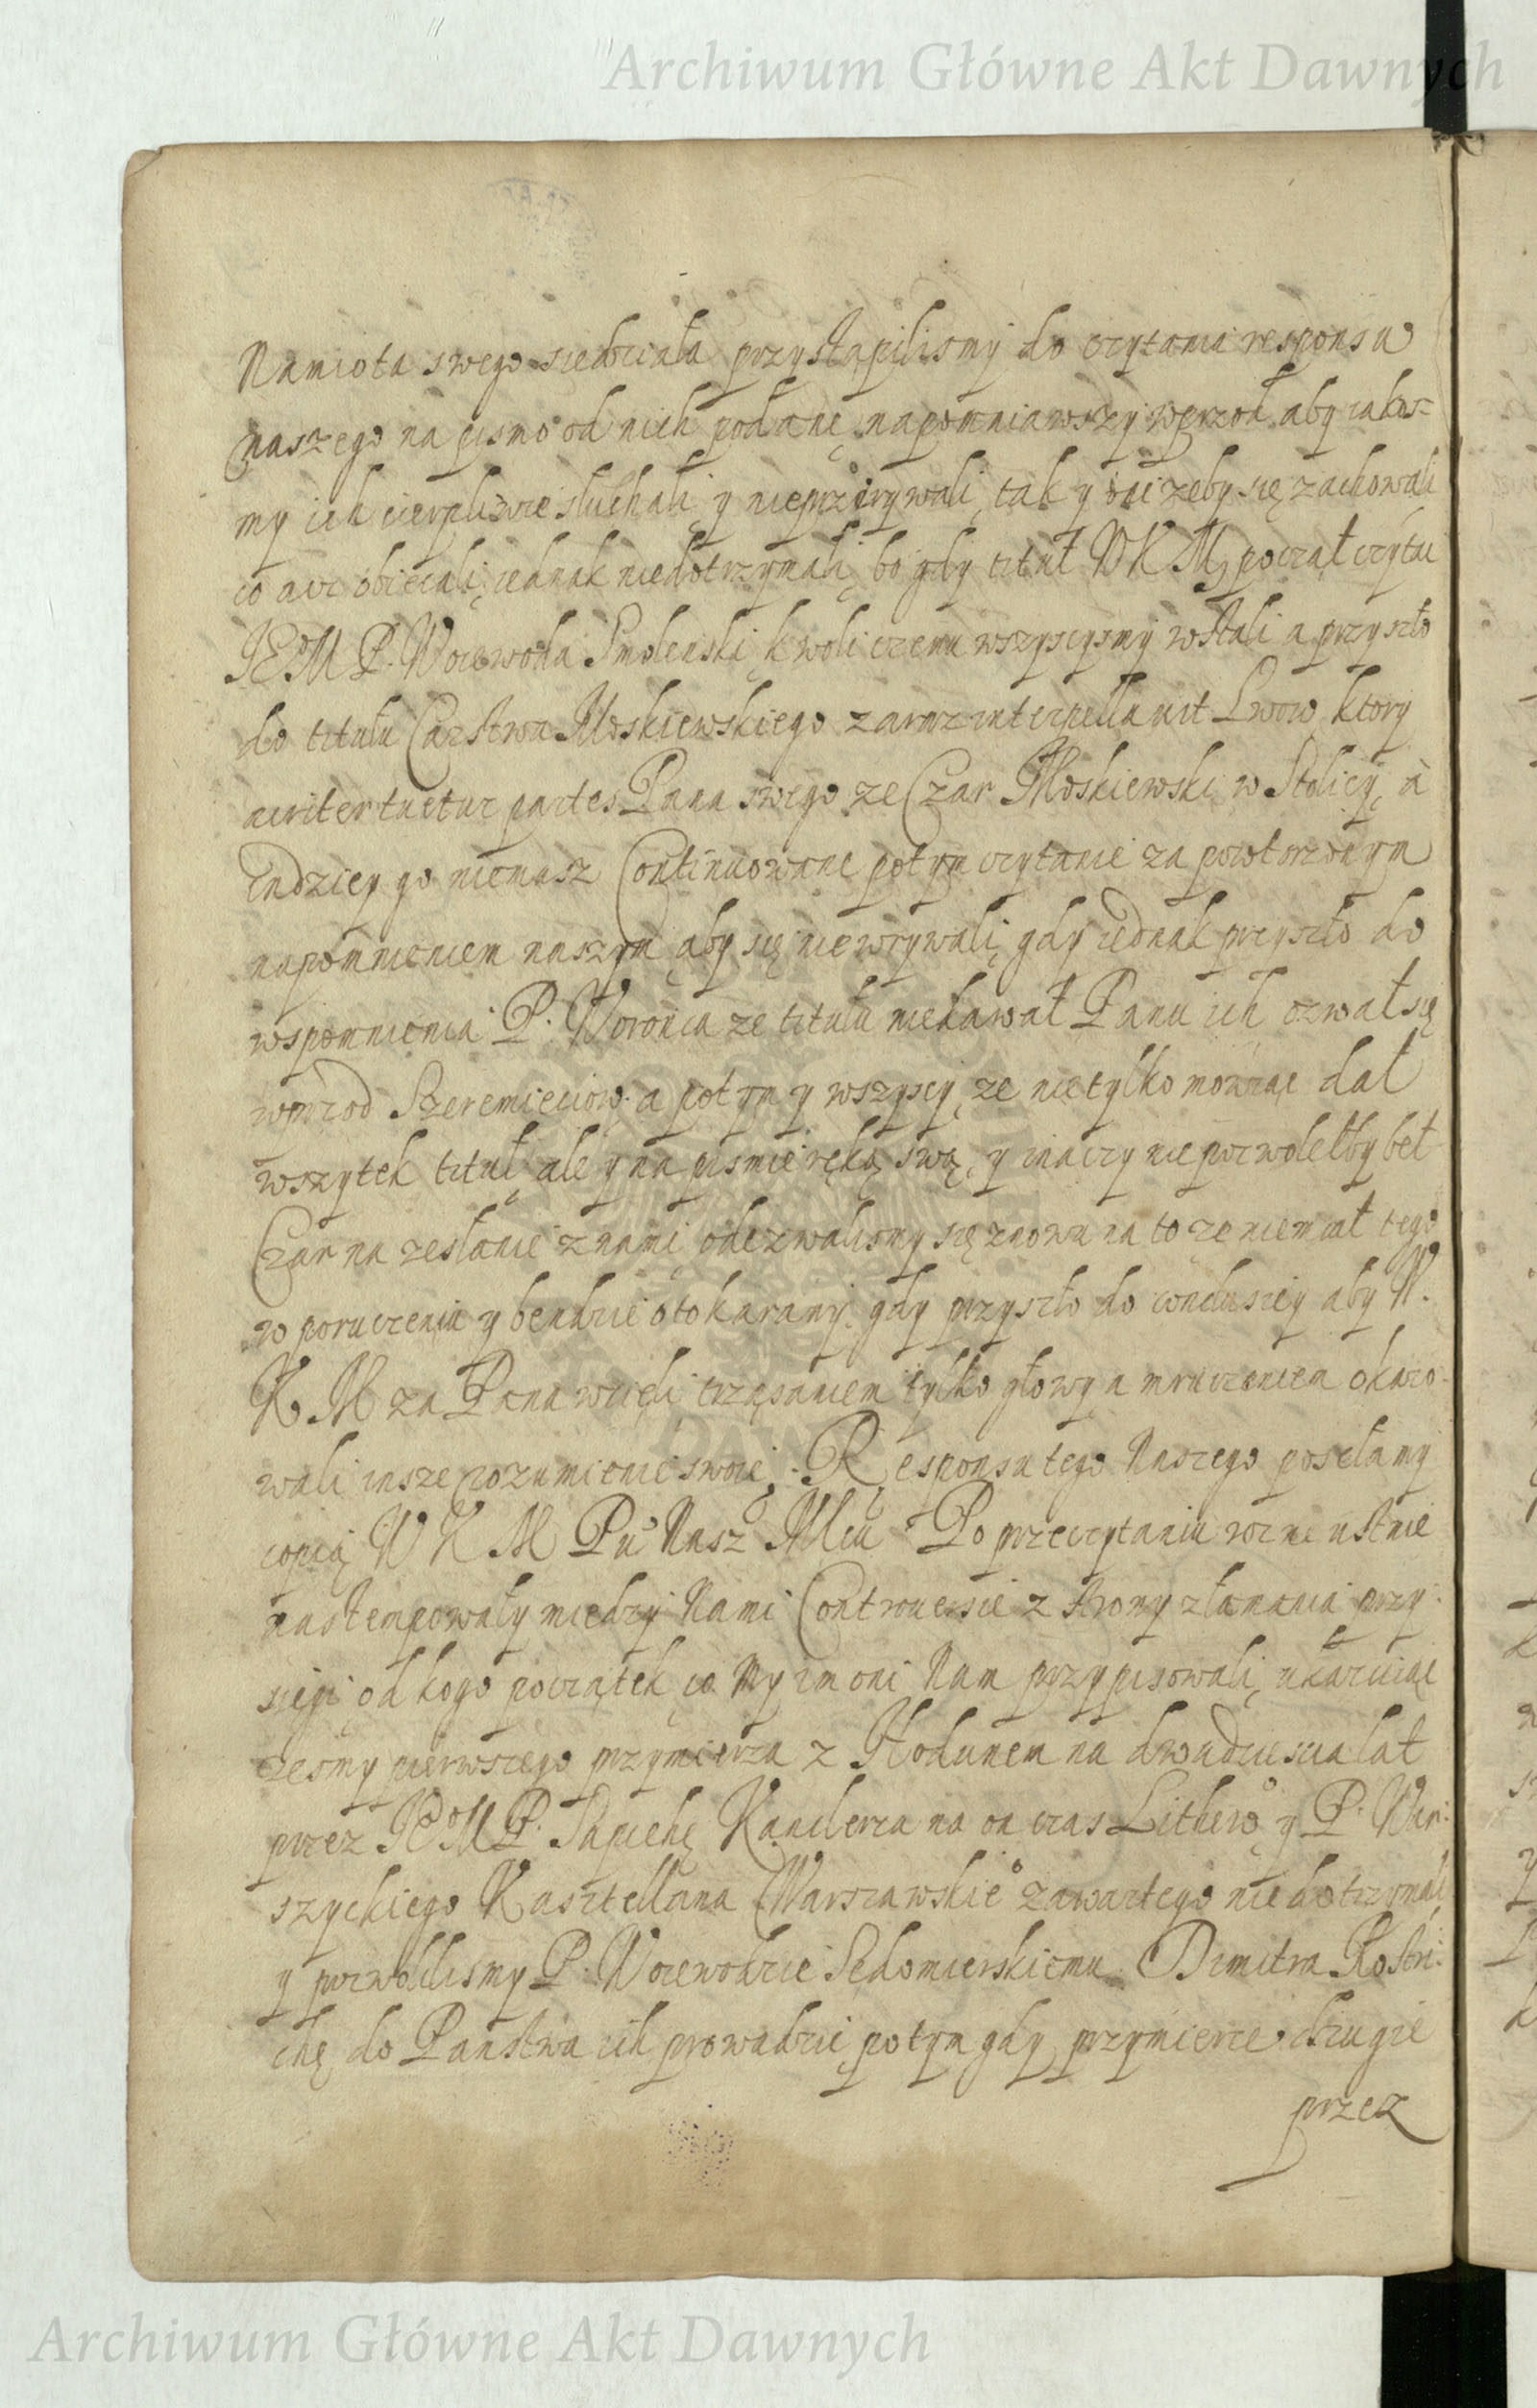 Archiwum Główne Akt Dawnych
Namiota swego siedziała przystąpilismy do czytania responsu
naszego na pismo od nich podane, napomniawszy wprzod, aby iakos-
my ich cierpliwie słuchali, y nieprzerywali, tak y oni zeby się zachowali
co acz obiecali, iednak niedotrzymali, bo gdy tituł W K M, począł czytac
JEoM P. Woiewoda Smolenski, kwoli czemu wszyscysmy wstali a przyszło
do titułu Carstwa Moskiewskiego zaraz interpellauit Lwow, ktory
acriter tuetur partes Pana swego ze Czar Moskiewski w Stolicy, à
Indziey go niemasz Continuowane potym czytanie za powtorzonym
napomnieniem naszym, aby się niewrywali, gdy iednak przyszło do
wspomnienia P. Woronca ze titułu niedawał Panu ich ozwał się
wprzod Szeremieciow. a potym y wszyscy, ze nietylko mowiąc dał
wszytek tituł, ale y na pismie ręką swą, y inaczy niepozwolełby beł
Czar na zesłanie z nami, odezwalismy się znowu na to ze niemiał tego
w poruczeniu y bendzie oto karany. gdy przyszło do conclusiey aby W.
K. M za Pana wzięli trząsaniem tylko głowy a mruczeniem okazo-
wali insze rozumienie swoie. Responsu tego Naszego posełamy
copią W K M Pu Nasz Mciu Po przeczytaniu rozne ustnie
nastempowały miedzy Nami Controuersie z strony złamania przy-
sięgi od kogo początek, co My im oni Nam przypisowali, ukazuiąc
zesmy pierwszego przymierza z Hodunem na dwadziescia lat
przez JEoM P. Sapiehę Kanclerza na on czas Lithego y P. War-
szyckiego Kasztellana Warszawskiego zawartego niedotrzymali
y pozwolilismy P. Woiewodzie Sędomierskiemu Dimitra Rostri-
chę do Panstwa ich prowadzić, potym gdy przymierze drugie
przez
Archiwum Główne Akt Dawnych